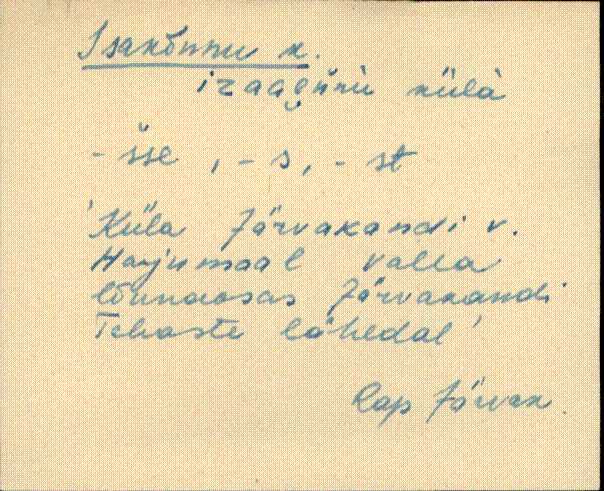 Isakõnnu k.
izaagünü külà
- šse, - s, - st
'Küla Järvakandi v.
Harjumaal valla
lõunaosas Järvakandi
Tehaste lähedal'
Rap Järvak.